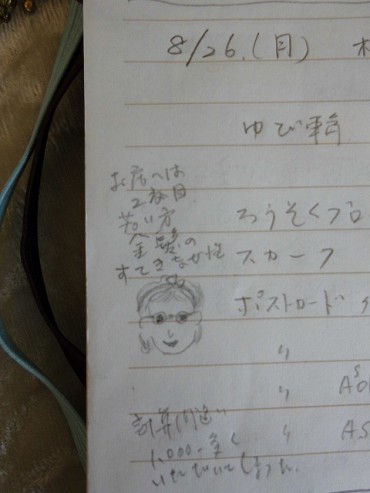 8/26.(月)
ゆび輪
お店へは
2度目
若い方
金髪の
すてきな女性
ろうそくブロ
スカーフ
ポストカード
〃
〃
〃 AS
計算間違い
1,000-多く
いただいてしまった。